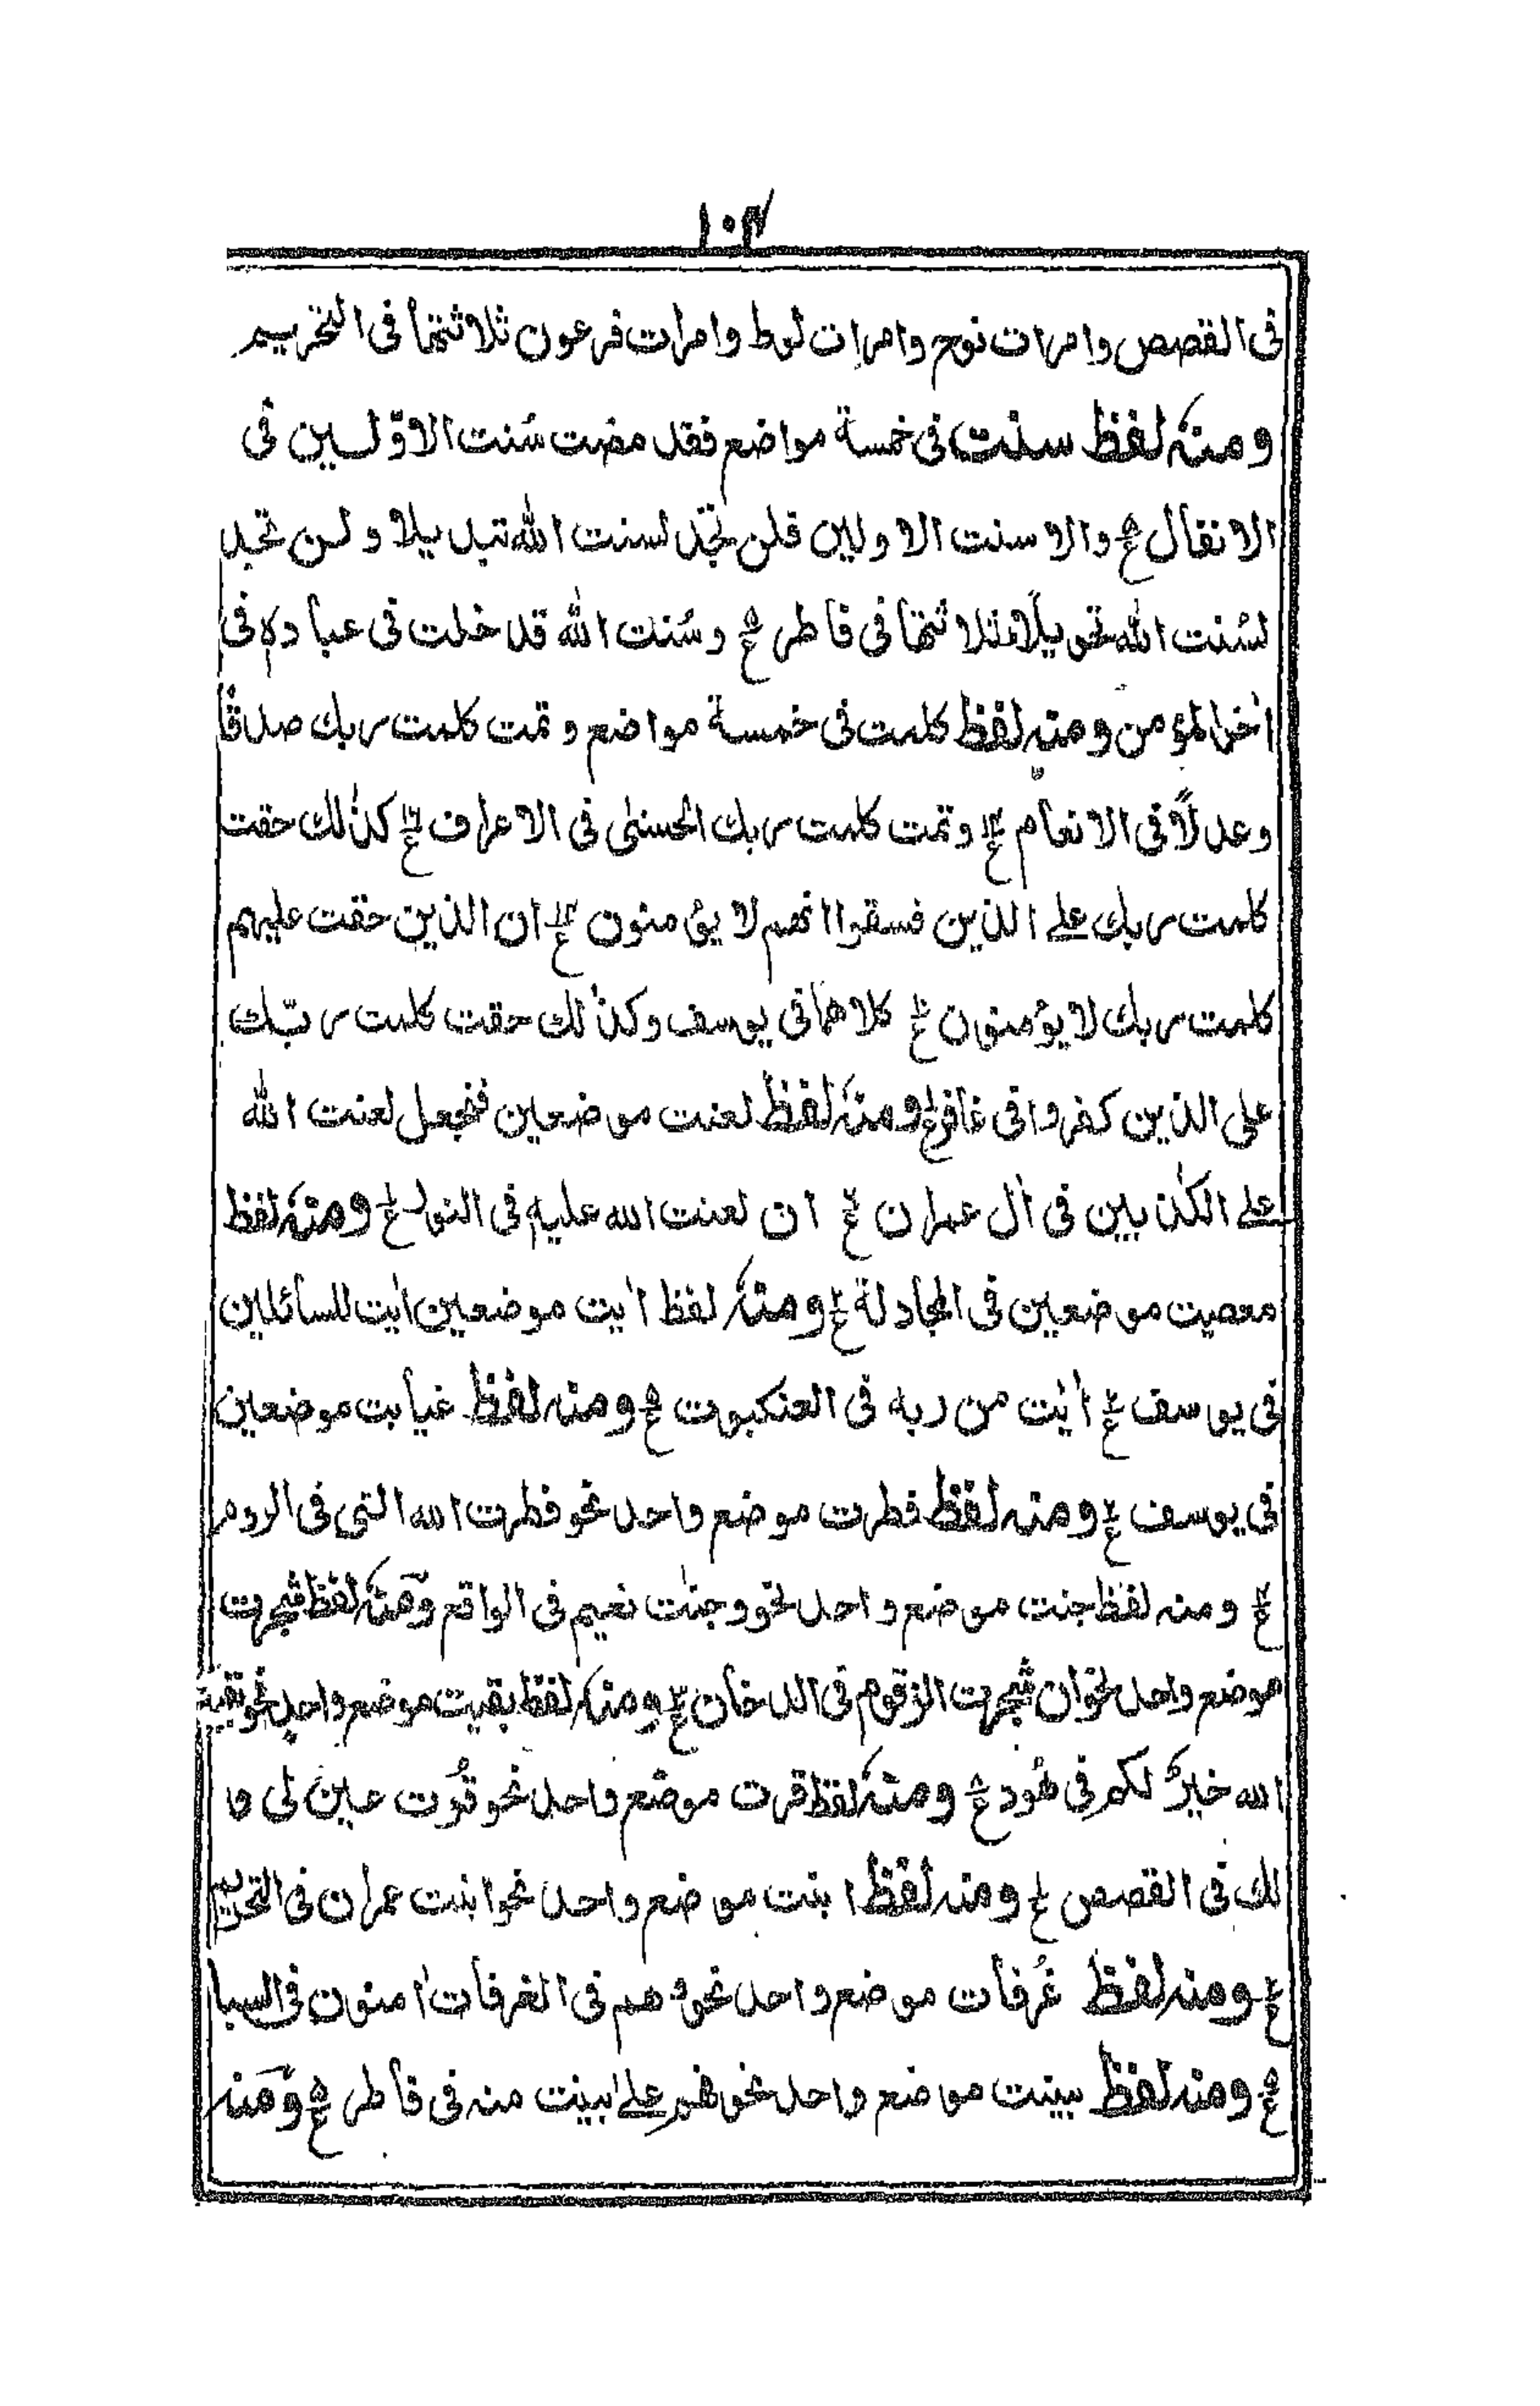 ۱۰۴
فی القصص وامرات نوح وامرات لوط وامرات فرعون ثلاثتها فی التحریم
ومنه لفظ سنت فی خمسة مواضع فقد مضت سُنت الاوّلین فی
الانفال ع والا سنت الاولین فلن تجد لسنت الله تبدیلا ولن تجد
لسُنت الله تحویلًا ثلاثتها فی فاطر ع وسُنت الله قد خلت فی عباده فی
اٰخر المؤمن ومنه لفظ کلمت فی خمسة مواضع وتمت کلمت ربك صدقًا
وعدلًا فی الانعام ع وتمت کلمت ربك الحسنیٰ فی الاعراف ع کذٰلك حقت
کلمت ربك علے الذین فسقوا انهم لا یؤمنون ع ان الذین حقت علیهم
کلمت ربك لا یؤمنون ع کلاهما فی یوسف وکذٰلك حقت کلمت ربّك
علی الذین کفروا فی غافر ع ومنه لفظ لعنت موضعین فنجعل لعنت الله
علے الکٰذبین فی اٰل عمران ع ان لعنت الله علیه فی النور ع ومنه لفظ
معصیت موضعین فی المجادلة ع ومنه لفظ اٰیت موضعین اٰیت للسائلین
فی یوسف ع اٰیٰت من ربه فی العنکبوت ع ومنه لفظ غیابت موضعین
فی یوسف ع ومنه لفظ فطرت موضع واحد نحو فطرت الله التی فی الروم
ع ومنه لفظ جنت موضع واحد نحو وجنّت نعیم فی الواقع ومنه لفظ شجرت
موضع واحد نحو ان شجرت الزقوم فی الدخان ع ومنه لفظ بقیت موضع واحد نحو بقیة
الله خیرٌ لکم فی هُود ع ومنه لفظ قرت موضع واحد نحو قرّت عین لی و
لك فی القصص ع ومنه لفظ ابنت موضع واحد نحو ابنت عمران فی التحریم
ع ومنه لفظ غُرفات موضع واحد نحو وهم فی الغرفات اٰمنون فی السبا
ع ومنه لفظ بینت موضع واحد نحو فهم علے بینت منه فی فاطر ع ومنه